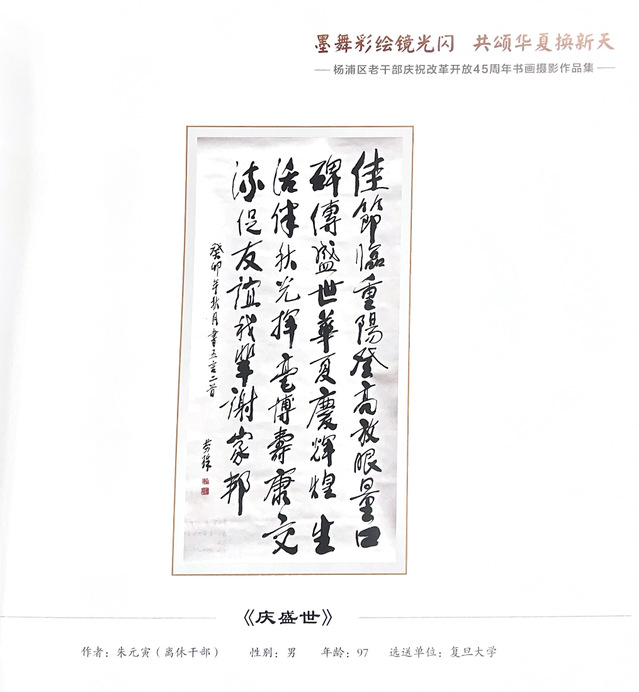 墨舞彩绘镜光闪 共颂华夏换新天
杨浦区老干部庆祝改革开放45周年书画摄影作品集
佳節臨重陽登高放眼量口
碑傳盛世華夏慶輝煌生
活伴秋光揮毫博壽康交
流促友誼我輩謝家邦
癸卯年秋月書五言二首
《庆盛世》
作者：朱元寅（离休干部） 性别：男 年龄：97 选送单位：复旦大学